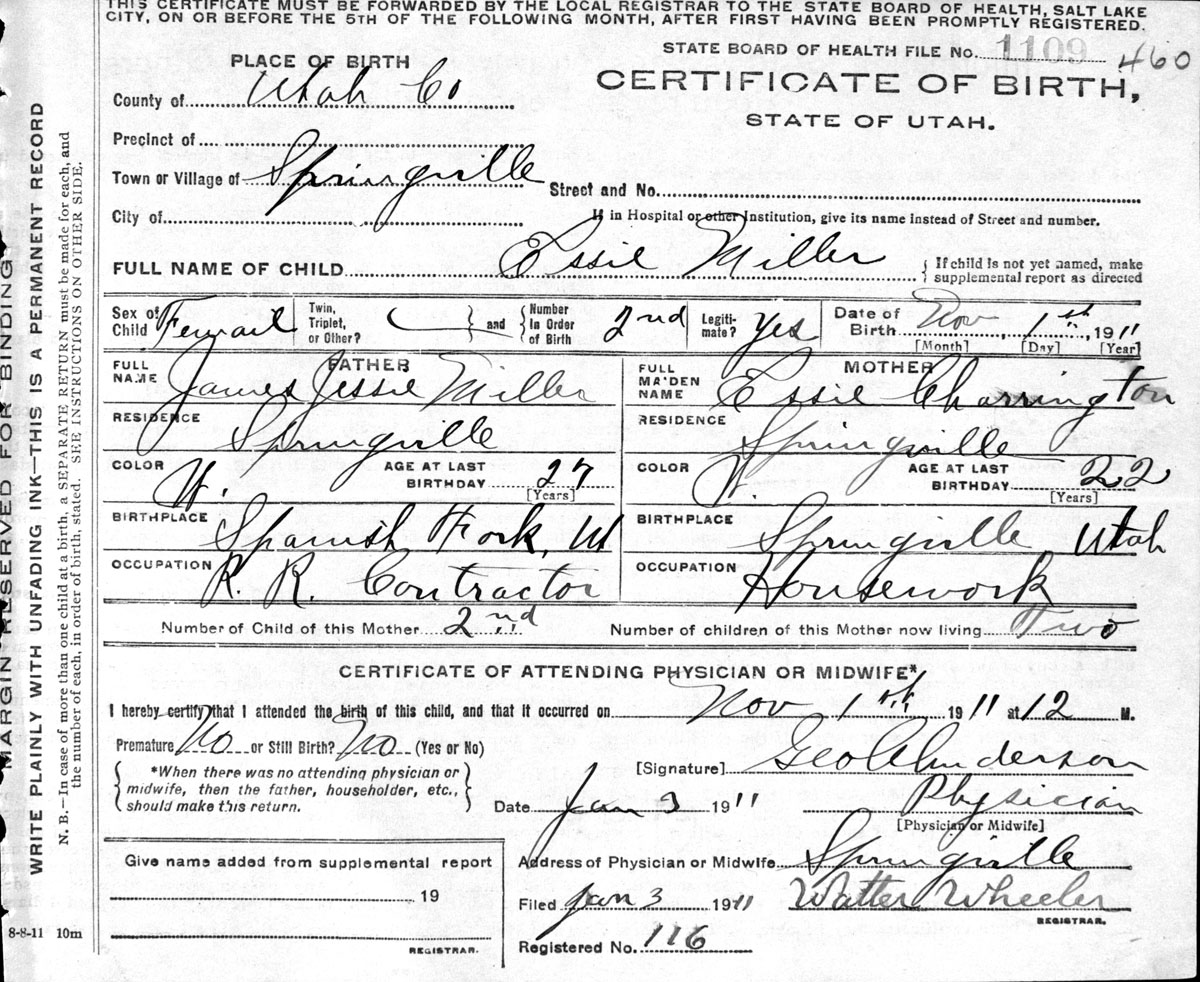 THIS CERTIFICATE MUST BE FORWARDED BY THE LOCAL REGISTRAR TO THE STATE BOARD OF HEALTH, SALT LAKE
CITY, ON OR BEFORE THE 5TH OF THE FOLLOWING MONTH, AFTER FIRST HAVING BEEN PROMPTLY REGISTERED.
STATE BOARD OF HEALTH FILE No. 1109 460
PLACE OF BIRTH
CERTIFICATE OF BIRTH,
County of Utah Co
STATE OF UTAH.
Precinct of
Town or Village of Springville
Street and No.
City of
If in Hospital or other Institution, give its name instead of Street and number.
FULL NAME OF CHILD Essie Miller { If child is not yet named, make
supplemental report as directed
Sex of Child Femail
Twin, Triplet, or Other? } and { Number in Order of Birth 2nd
Legitimate? Yes
Date of Birth Nov 1st, 1911
[Month] [Day] [Year]
FATHER
FULL NAME James Jessie Miller
RESIDENCE Springville
COLOR W. AGE AT LAST BIRTHDAY 27
[Years]
BIRTHPLACE Spanish Fork, Ut
OCCUPATION R. R. Contractor
MOTHER
FULL MAIDEN NAME Essie Charrington
RESIDENCE Springville
COLOR W. AGE AT LAST BIRTHDAY 22
[Years]
BIRTHPLACE Springville Utah
OCCUPATION Housework
Number of Child of this Mother 2nd Number of children of this Mother now living Two
CERTIFICATE OF ATTENDING PHYSICIAN OR MIDWIFE*
I hereby certify that I attended the birth of this child, and that it occurred on Nov 1st, 1911 at 12 M.
Premature No or Still Birth? No (Yes or No)
{ *When there was no attending physician or
midwife, then the father, householder, etc.,
should make this return. }
[Signature] Geo A Anderson
Date Jan 3 1911 Physician
[Physician or Midwife]
Address of Physician or Midwife Springville
Filed Jan 3 1911 Walter Wheeler
REGISTRAR.
Registered No. 116
Give name added from supplemental report
19
REGISTRAR.
8-8-11 10m
MARGIN RESERVED FOR BINDING
WRITE PLAINLY WITH UNFADING INK—THIS IS A PERMANENT RECORD
N. B.—In case of more than one child at a birth, a SEPARATE RETURN must be made for each, and
the number of each, in order of birth, stated. SEE INSTRUCTIONS ON OTHER SIDE.